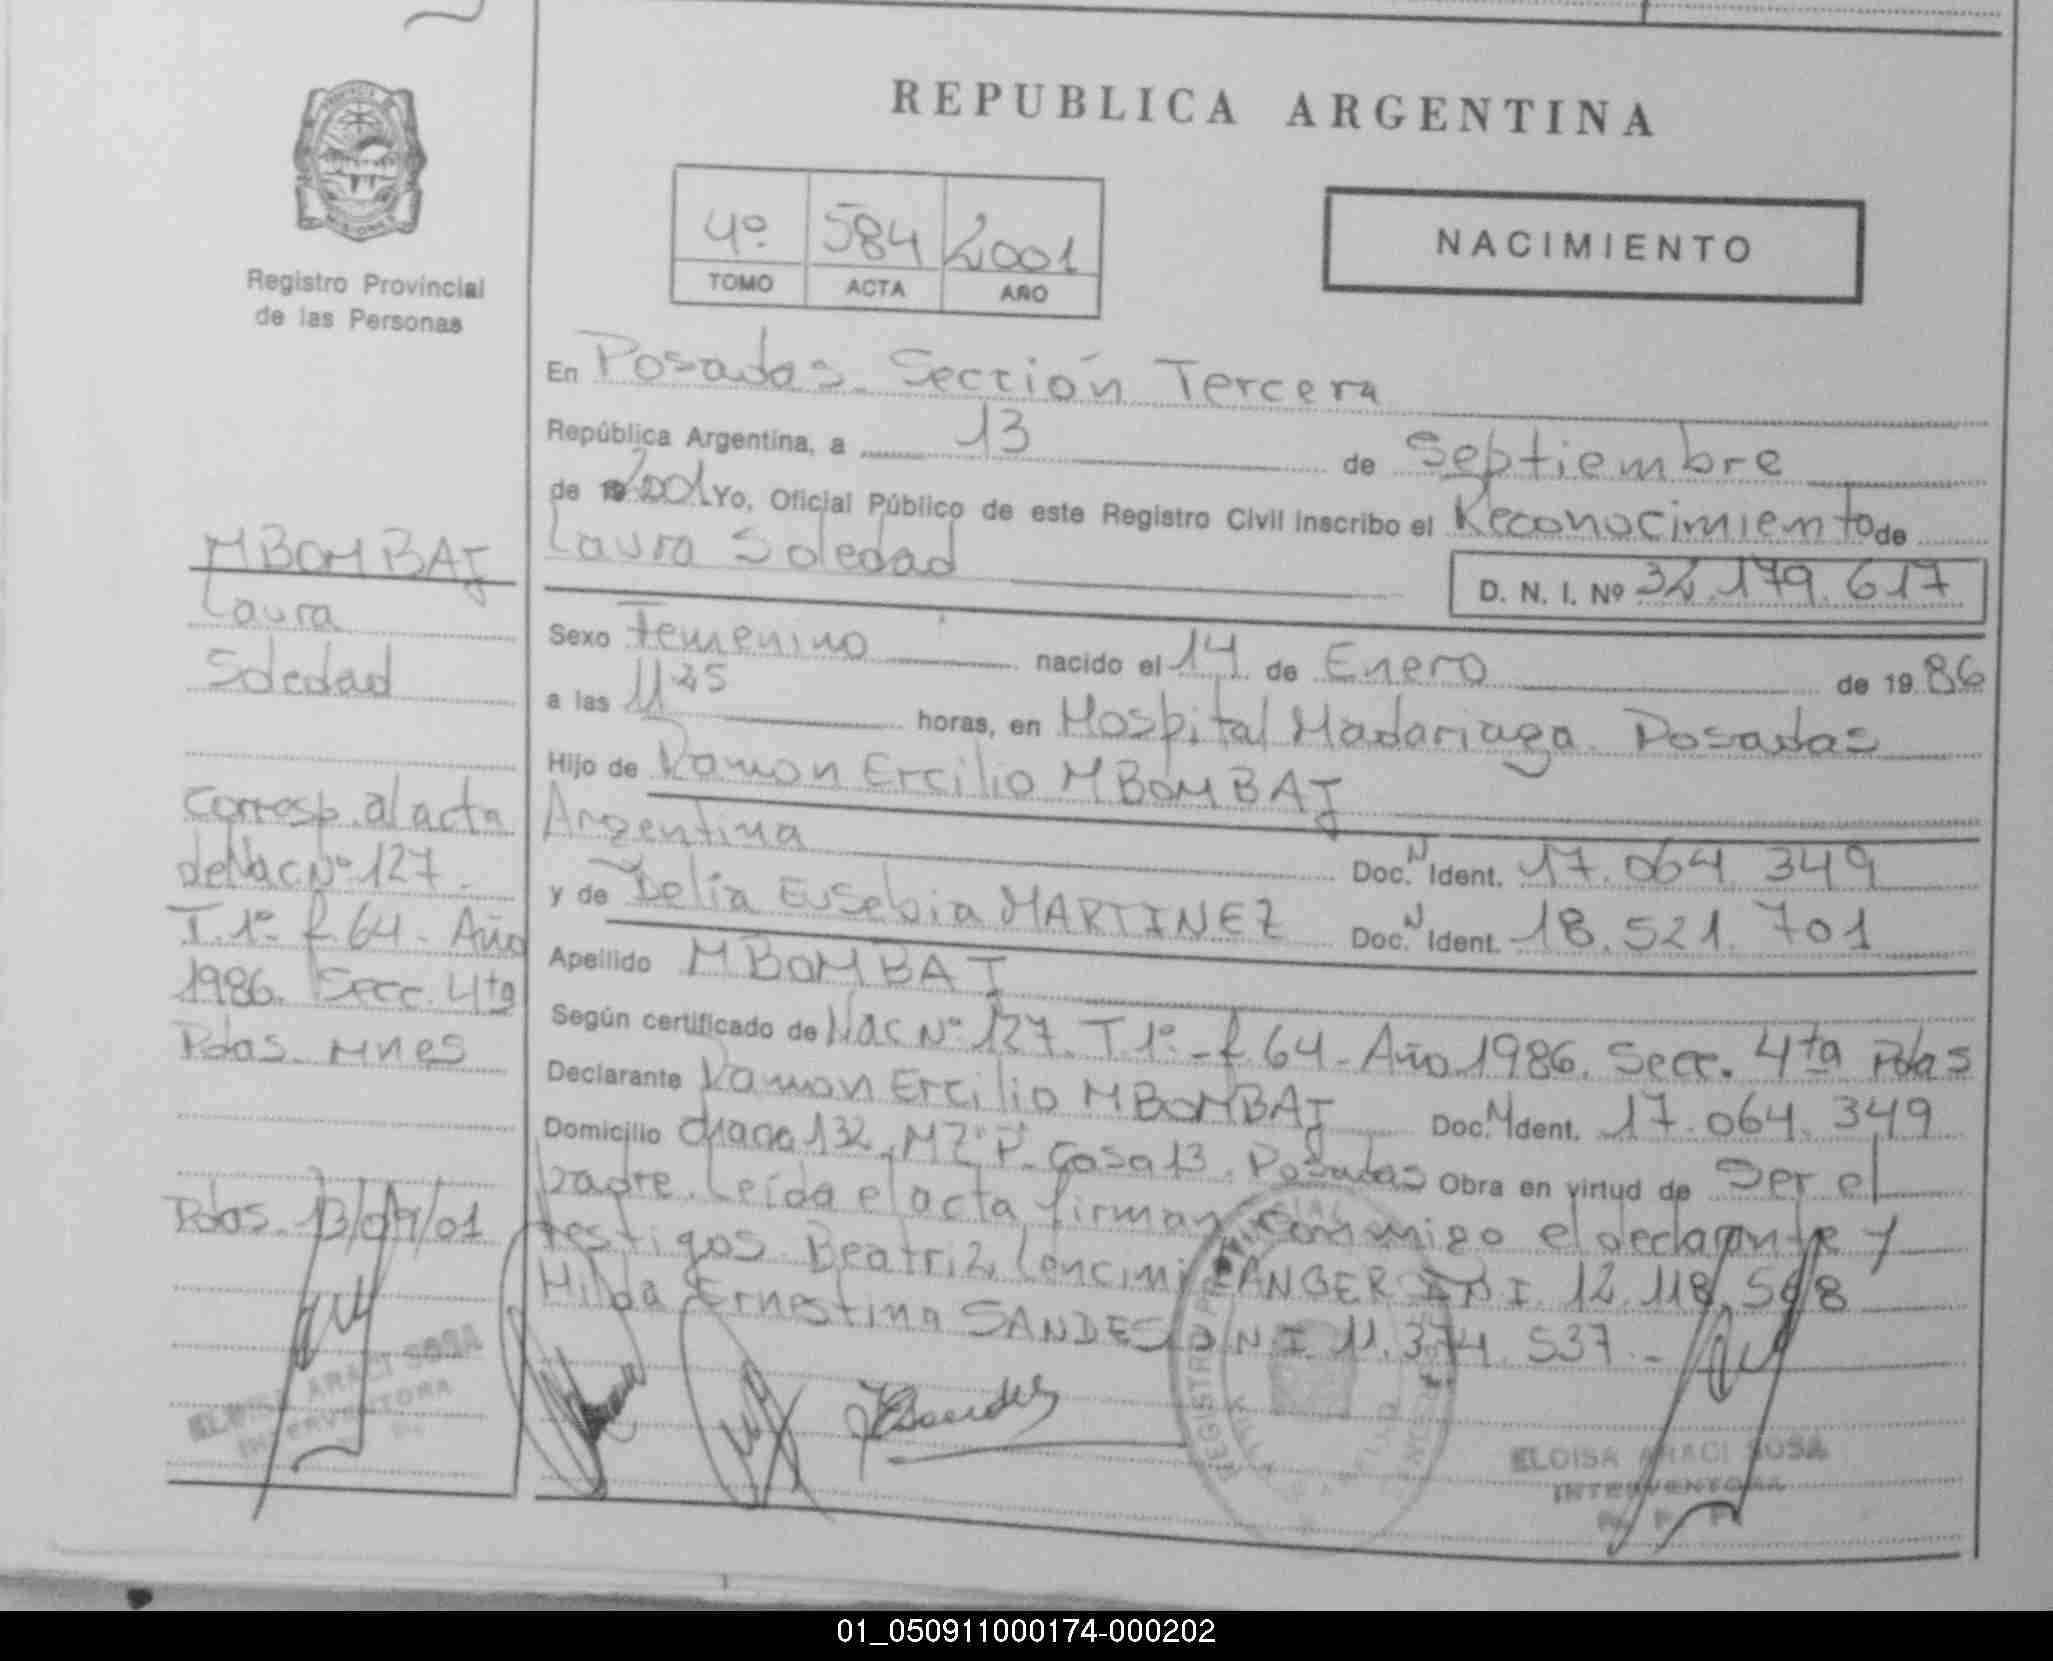 REPUBLICA ARGENTINA
Registro Provincial
de las Personas
4º 584 2001
TOMO ACTA AÑO
NACIMIENTO
En Posadas - Sección Tercera
República Argentina, a 13 de Septiembre
de 2001 Yo, Oficial Público de este Registro Civil inscribo el Reconocimiento de
Laura Soledad
D. N. I. Nº 32.179.617
Sexo Femenino nacido el 14 de Enero de 1986
a las 11 25 horas, en Hospital Madariaga. Posadas
Hijo de Ramon Ercilio MBOMBAJ
Argentina Doc. N Ident. 17.064.349
y de Delia Eusebia MARTINEZ Doc. N Ident. 18.521.701
Apellido MBOMBAJ
Según certificado de Nac Nº 127. T.1º - f. 64 - Año 1986. Secc. 4ta Pdas
Declarante Ramon Ercilio MBOMBAJ Doc. N Ident. 17.064.349
Domicilio Chacra 132, MZº P. Casa 13. Posadas Obra en virtud de Ser el
padre. Leída el acta firman conmigo el declarante y
testigos Beatriz LANGER D N I 12.118.598
Hilda Ernestina SANDES D.N.I. 11.374.537.-
MBOMBAJ
Laura
Soledad
Corresp. al acta
de Nac Nº 127.
T.1º f. 64 - Año
1986. Secc. 4ta
Pdas. Mnes
Pdas. 13/09/01
ELOISA ARACI SOSA
INTERVENTORA
ELOISA ARACI SOSA
INTERVENTORA
01_050911000174-000202